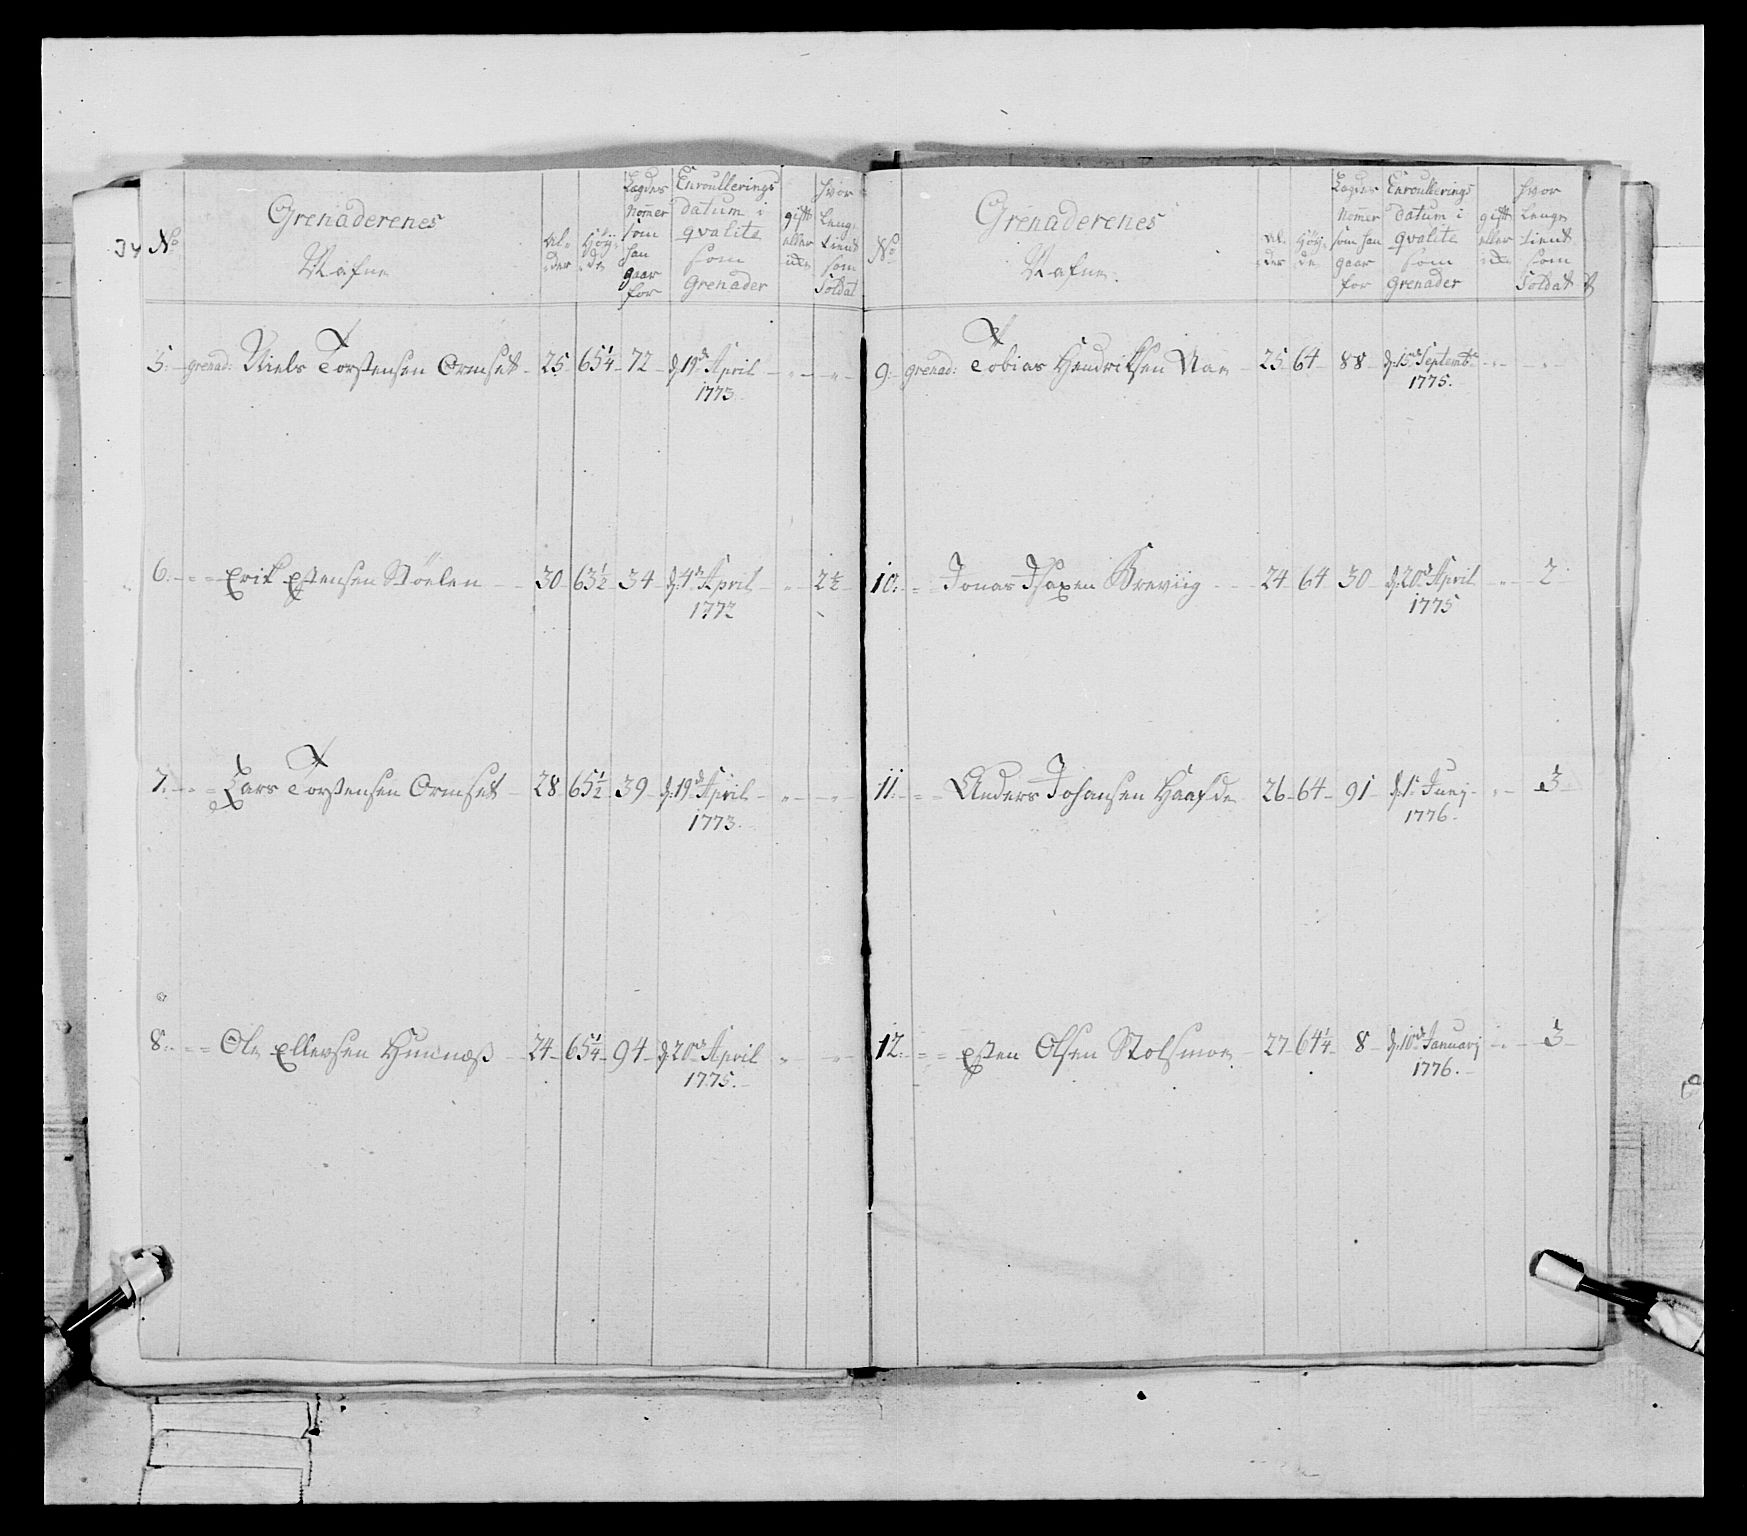 34
No
Grenaderenes Nafne
Al=der
Höy=de
Lægdes Nomer som han gaar for
Enroullerings datum i qvalite som Grenader
gift eller icke
hvor Længe tient som Soldat
5. grenad: Niels Torstensen Ormset 25 65¼ 72 d: 19de April 1773 " "
6. Erik Estensen Stöelen 30 63½ 34 d: 4de April 1772 " 2½
7. Lars Torstensen Ormset 28 65½ 39 d: 19de April 1773 " "
8. Ole Ellevsen 24 65¼ 94 d: 20de April 1775 " "
No
Grenaderenes Nafne
Al=der
Höy=de
Lægdes Nomer som han gaar for
Enroullerings datum i qvalite som Grenader
gift eller icke
hvor Længe tient som Soldat
9. grenad: Tobias Hendriksen 25 64 88 d: 15de Septembr 1775. " "
10. Jonas Isaxen Breviig 24 64 30 d: 20de April 1775 " 2
11. Anders Johansen 26 64 91 d: 1te Junj 1776. " 3
12. Esten Olsen Stolsmoe 27 64¼ 8 d: 10de Januarj 1776. " 3